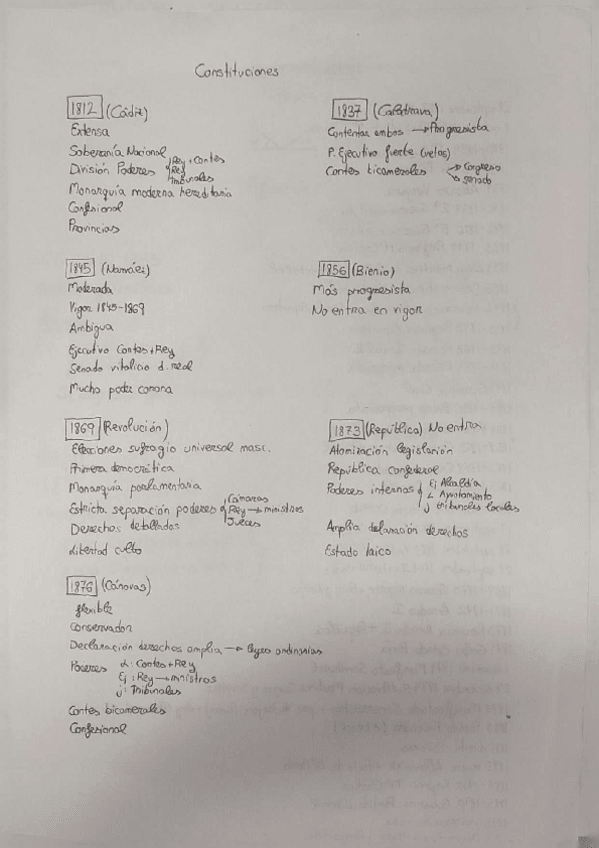 Constituciones
1812 (Cádiz)
Extensa
Soberanía Nacional
División Poderes { Rey + Cortes
Rey
tribunales
Monarquía moderna hereditaria
Confesional
Provincias
1837 (Calatrava)
Contentar ambos → Progresista
P. Ejecutivo fuerte (vetos)
Cortes bicamerales → Congreso
→ Senado
1845 (Narváez)
Moderada
Vigor 1845-1869
Ambigua
Ejecutivo Cortes + Rey
Senado vitalicio d. real
Mucho poder corona
1856 (Bienio)
Más progresista
No entra en vigor
1869 (Revolución)
Elecciones sufragio universal masc.
Primera democrática
Monarquía parlamentaria
Estricta separación poderes { Cámaras
Rey → ministros
Jueces
Derechos detallados
Libertad culto
1873 (República) No entra
Atomización legislación
República confederal
Poderes internos { Ej Alcaldía
L Ayuntamiento
J tribunales locales
Amplia declaración derechos
Estado laico
1876 (Cánovas)
flexible
Conservador
Declaración derechos amplia → leyes ordinarias
Poderes L: Cortes + Rey
Ej: Rey → ministros
J: Tribunales
Cortes bicamerales
Confesional